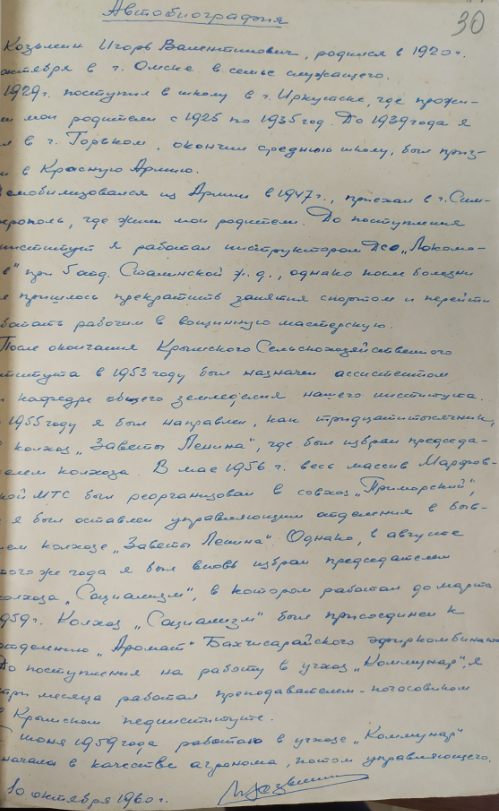 Автобиография
30
Козьмин Игорь Валентинович, родился в 1920 г.
октября в г. Омске в семье служащего.
1929 г. поступил в школу в г. Иркутске, где прожи-
и мои родители с 1925 по 1935 год. До 1939 года я
л в г. Горьком, окончил среднюю школу, был приз-
н в Красную Армию.
емобилизовался из Армии в 1947 г., приехал в г. Сим-
ерополь, где жили мои родители. До поступления
институт я работал инструктором ДСО „Локомо-
в" при 5 Сталинской ж.д., однако после болезни
е пришлось прекратить занятия спортом и перейти
ботать рабочим в вощинную мастерскую.
После окончания Крымского Сельскохозяйственного
ститута в 1953 году был назначен ассистентом
кафедре общего земледелия нашего института.
1955 году я был направлен, как тридцатитысячник,
колхоз „Заветы Ленина", где был избран председа-
елем колхоза. В мае 1956 г. весь массив Марфов-
кой МТС был реорганизован в совхоз „Приморский",
я был оставлен управляющим отделения в быв-
ем колхозе „Заветы Ленина". Однако, в августе
ого же года я был вновь избран председателем
олхоза „Социализм", в котором работал до марта
959 г. Колхоз „Социализм" был присоединен к
отделению „Аромат" Бахчисарайского эфиркомбината
До поступления на работу в учхоз „Коммунар", я
три месяца работал преподавателем-почасовиком
в Крымском пединституте.
С июня 1959 года работаю в учхозе „Коммунар"
начала в качестве агронома, потом управляющего.
10 октября 1960 г.